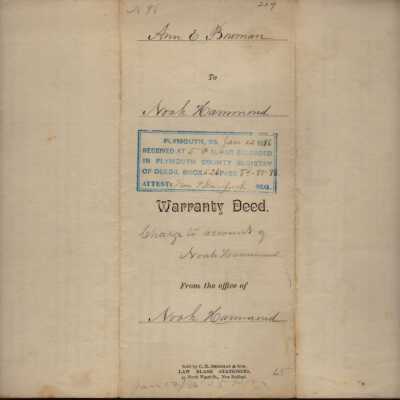 209
Ann E Bowman
To
Noah Hammond
PLYMOUTH, SS. Jan 22 1896
RECEIVED AT 5 P M. AND RECORDED
IN PLYMOUTH COUNTY REGISTRY
OF DEEDS, BOOK PAGE
ATTEST: REG.
Warranty Deed.
Charge to account of
Noah Hammond
From the office of
Noah Hammond
Sold by & Son,
LAW BLANK STATIONERS,
New Bedford.
65